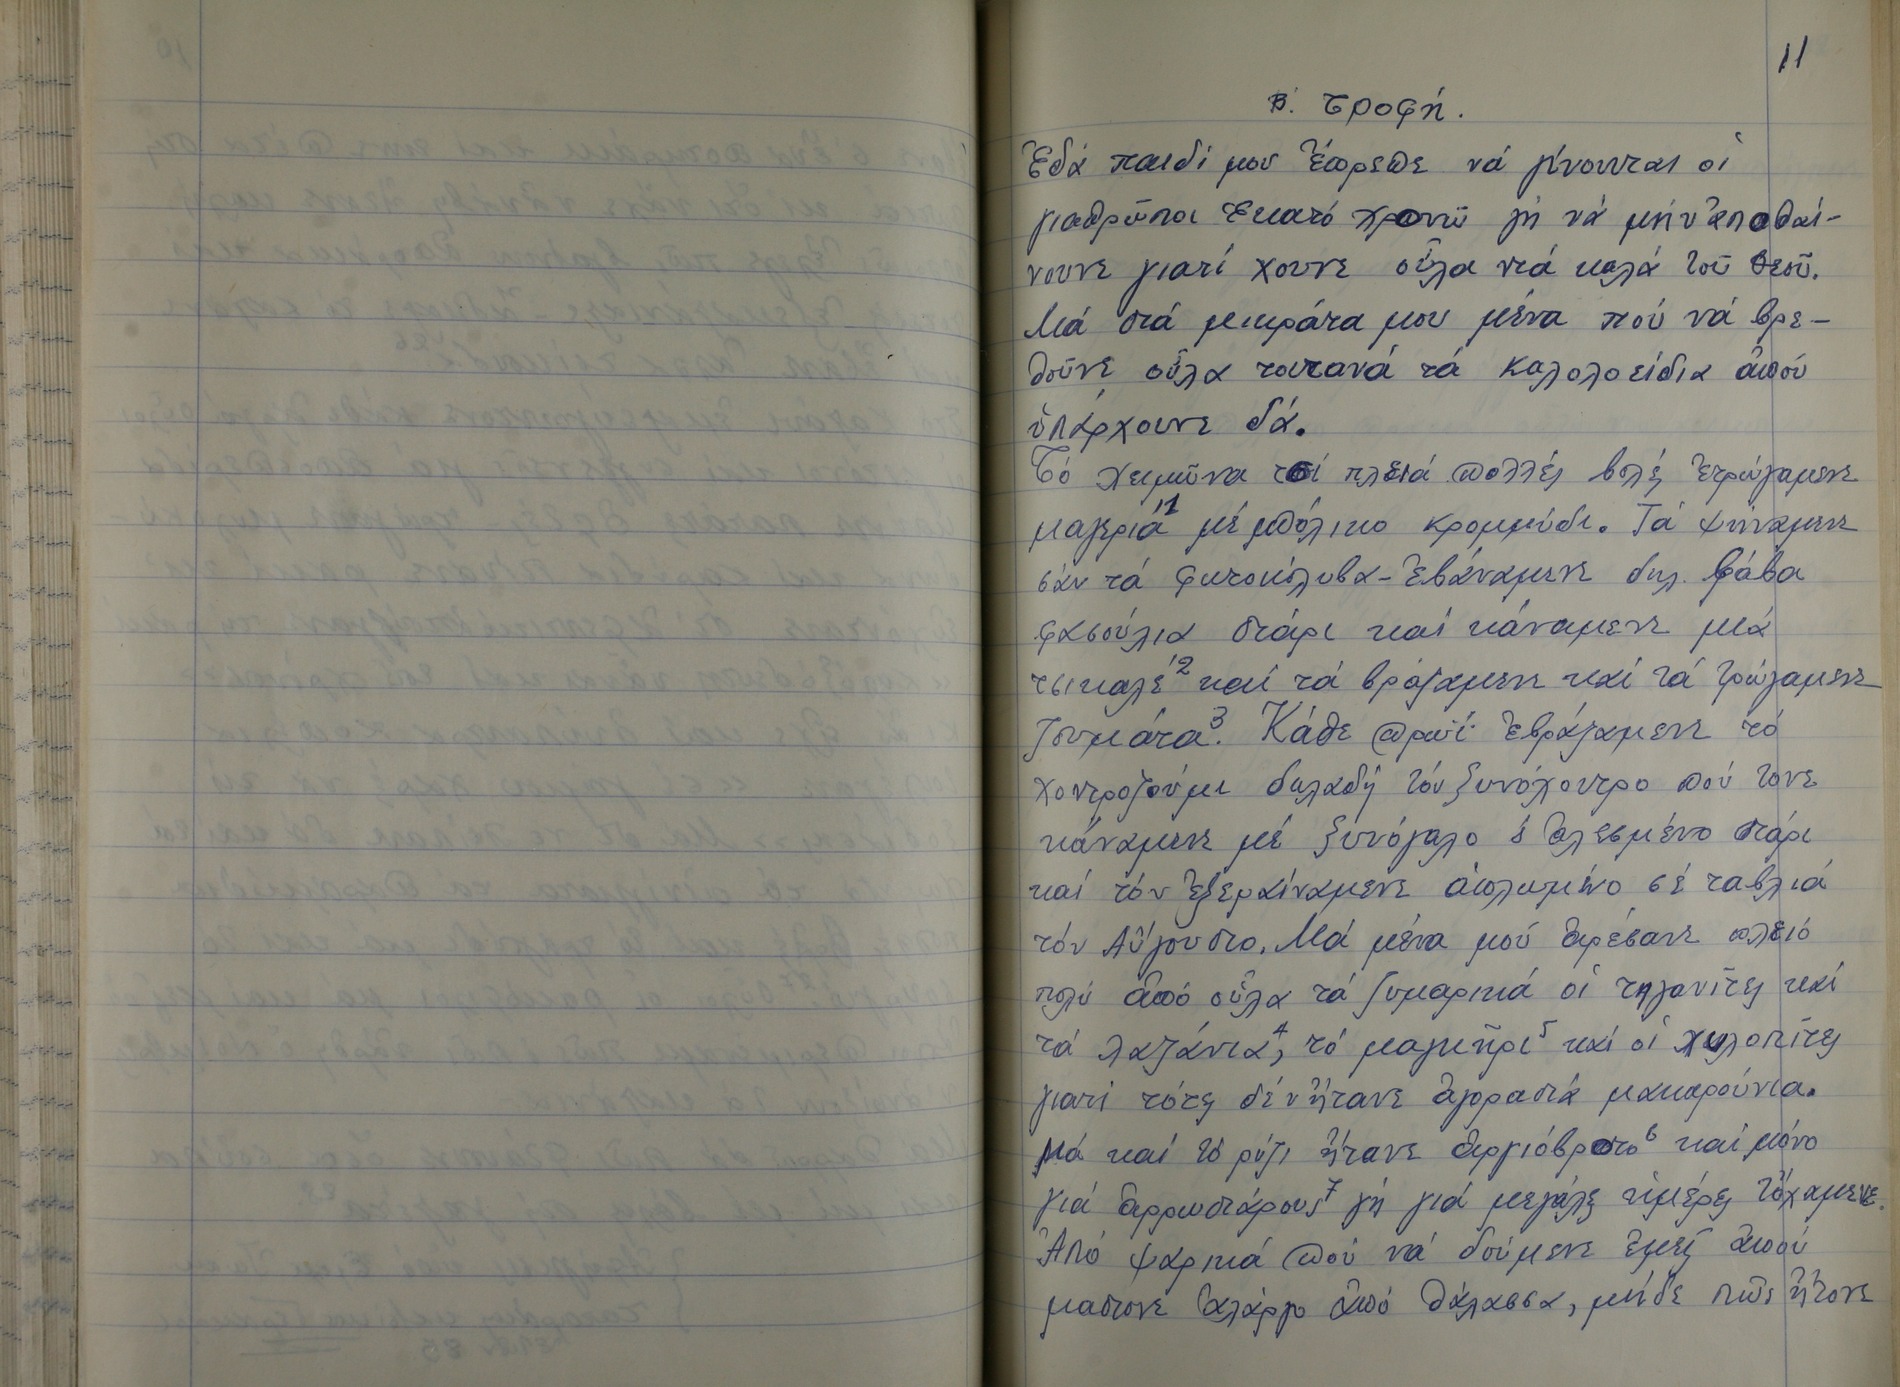 11
Β. Τροφή.
Ἐδά παιδί μου ἔπρεπε νά γίνουνται οἱ
γιαθρῶποι ἑκατό χρονῶ γή νά μήν ἀποθαί-
νουνε γιατί χουνε οὗλα ντά καλά τοῦ Θεοῦ.
Μά στά μικράτα μου μένα πού νά βρε-
θοῦνε οὗλα τουτανά τά καλολοείδια ἀπού
ὑπάρχουνε δά.
Τό χειμῶνα τσί πλειά πολλές βολές ἐτρώγαμενε
μαγεριά¹ μέ μπόλικο κρομμύδι. Τά ψήναμενε
σάν τά φωτοκόλυβα - Ἐβάναμενε δηλ. φάβα
φασούλια στάρι καί κάναμενε μιά
τσικαλέ² καί τά βράζαμενε καί τά τρώγαμενε
ζουμάτα³. Κάθε πρωΐ ἐβράζαμενε τό
χοντροζούμι δαλαδή τόν ξυνόχοντρο πού τονε
κάναμενε μέ ξυνόγαλο ἐ ἀλεσμένο στάρι
καί τόν ἐξεραίναμενε ἁπλωμένο σέ ταβλιά
τόν Αὔγουστο. Μά μένα μού ἀρέσανε πλειό
πολύ ἀπό οὗλα τά ζυμαρικά οἱ τηγανίτες καί
τά λαζάνια⁴, τό μαγκῆρι⁵ καί οἱ χυλοπίτες
γιατί τότες δέν ἤτανε ἀγοραστά μακαρούνια.
Μά καί τό ρύζι ἤτανε ἀργιόβροτο⁶ καί μόνο
γιά ἀρρωστάρους⁷ γή γιά μεγάλες ἡμέρες τὄχαμενε.
Ἀπό ψαρικά πού νά δούμενε ἐμεῖς ἀπού
μαστονε ἀλάργο ἀπό θάλασσα, μήδε πῶς ἤτονε